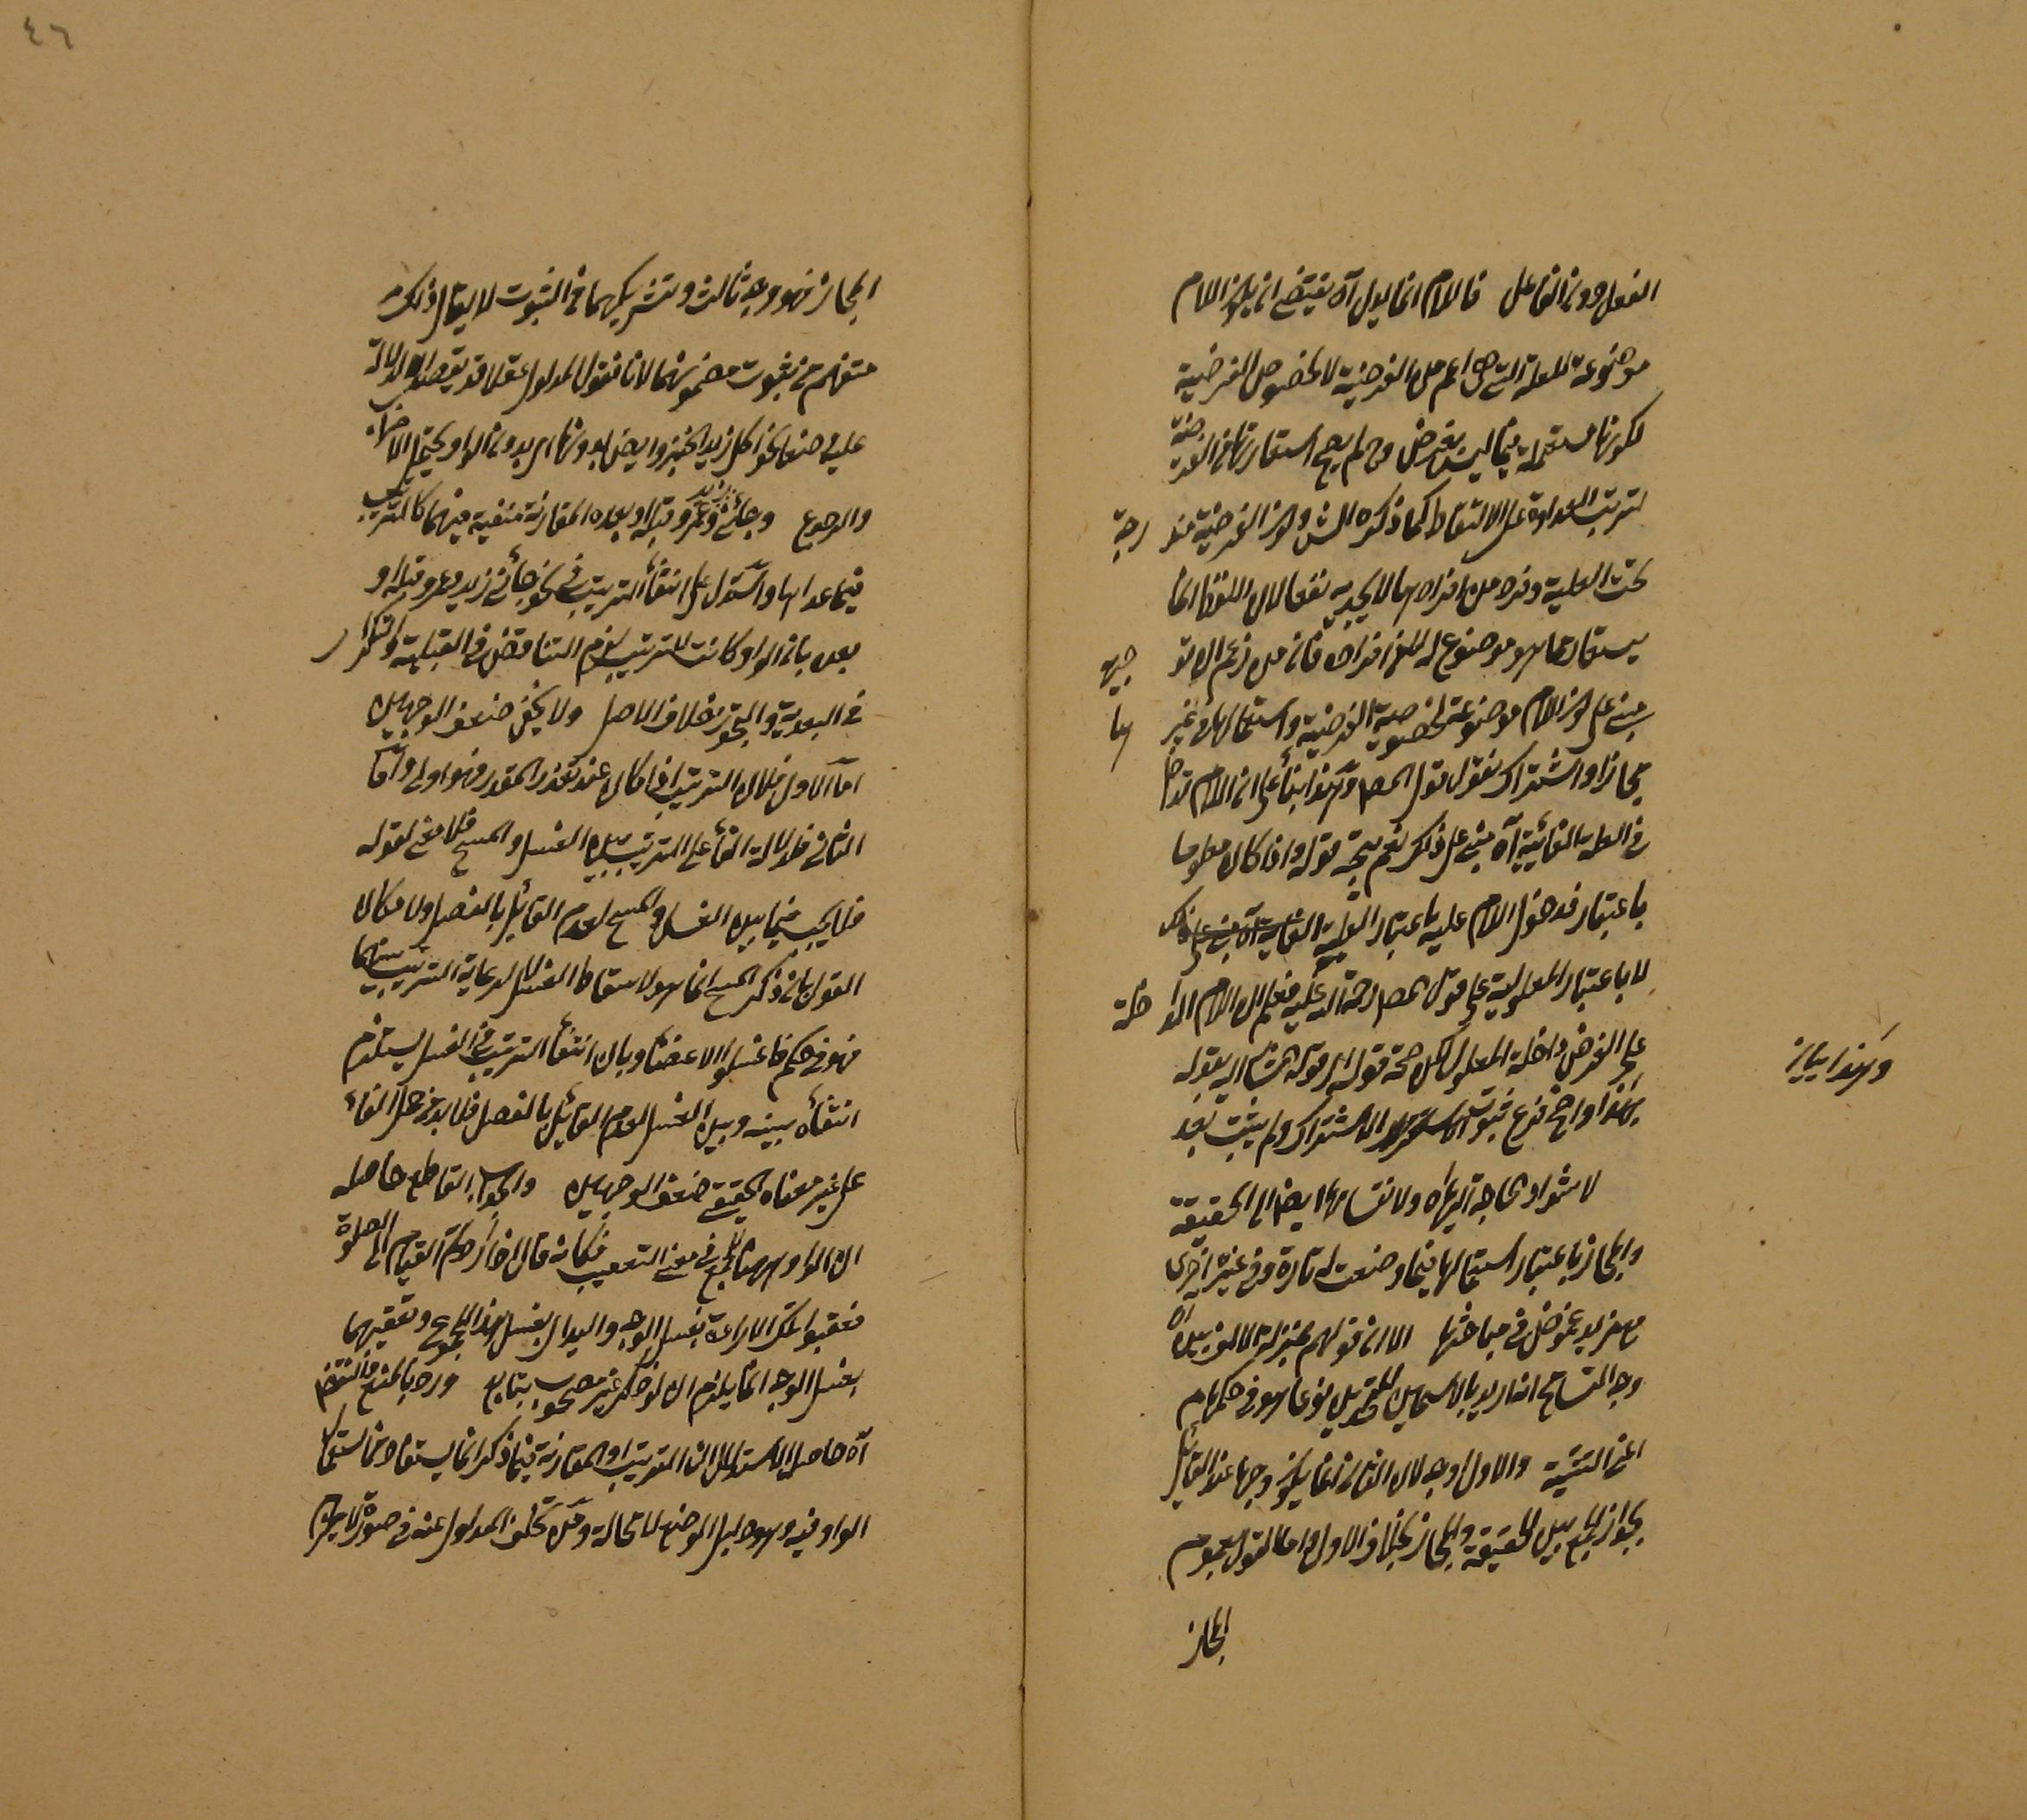 الفعل دون الفاعل فاللام انما يدل آه يقتضي ان يكون اللام
موضوعة للعلة التي هي اعم من الغرضية لا لخصوص الغرضية
لكونها مستعملة فيما ليس بغرض وح لم يصح استعارتها في الغرضية
لترتب العداوة على الالتقاط كما ذكره الش وكون الغرضية مندرجة
تحت العلية وفردا من افرادها لا يجديه نفعا لان اللفظ انما
يستعار لما هو موضوع له لا افراده فانه من زعم ان توجيه
مبني على كون اللام موضوعة لخصوصية الغرضية واستعمالها في غيرها
مجازا واشتراك نقول قول المص وهذا بناء على ان اللام تدخل
في العلة الغائية آه مبني على ذلك نعم يتجه قوله واذا كان معلوما
باعتبار فدخول اللام عليه باعتبار العلية الغائية آه مبني على ذلك
لا باعتبار المعلولية على قول المص رحمة الله عليه فعلم ان اللام الداخلة
على الغرض داخلة المعلول لكن صحة قوله اثر قوله المشار اليه بقوله
وهذا يجاز
هذا واضح فرع ثبوت الاشتراك ولم يثبت بعد
لاشتداد الحاجة اليها آه ولانقسامها ايضا الى الحقيقة
والمجاز باعتبار استعمالها فيما وضعت له تارة وفي غيره اخرى
مع مزيد غموض في مباحثها الا ان قولهم بمنزلة الالف بين آه
وجه التسامح انه اريد بالاسمين المتحدين نوعا هو في حكمهما م
اعني التثنية والاول اوجه لان الثاني انما يكون وجها عند القائل
بجواز الجمع بين الحقيقة والمجاز بخلاف الاول واما القول بعموم
المجاز
٤٦
المجاز فهو وجه ثالث وتشريكهما في الثبوت لا يقال ذلك
متفهم من ثبوت مضمونهما لانا نقول المدلول عقلا قد يقصد الدلالة
عليه وضعا نحو اكل زيد الخبز وايضا بدونها اي بدون الواو يحتمل الاضراب
والرجوع وجاءني زيد وعمرو قبله او بعده المقارنة منفية فيهما كالترتيب
فيما عداها واستدل على انتفاء الترتيب في نحو جاءني زيد وعمرو قبله او
بعده بان الواو لو كانت للترتيب لزم التناقض في القبلية والتكرار
في البعدية والتجوز خلاف الاصل ولا يخفى ضعف الوجهين
اما الاول فلان الترتيب اذا كان عند تعذر المقدر فهو اولى واما
الثاني فلدلالة الفاء على الترتيب بين الغسل والمسح فلا معنى لقوله
فلا يجب فيما بين الغسل والمسح لعدم القائل بالفصل ولامكان
القول بان ذكر المسح انما هو لاسقاط الغسل لا لرعاية الترتيب بينهما
فهو في حكم فاغسلوا الاعضاء وبان انتفاء الترتيب في الغسل يستلزم
انتفاءه بينه وبين الغسل لعدم القائل بالفصل فلا بد من حمل الفاء
على غير معناه الحقيقي ضعف الوجهين والجواب القاطع حاصله
ان الواو هنا للجمع في معنى التعقيب فكانه قال اذا اردتم القيام الى الصلوة
فعقبوا تلك الارادة بغسل الوجه واليدين بغسل هذا المجموع وتعقيبهما
بغسل الوجه انما يلزم ان لو ذكر غير مصحوب بتابع ورد بالمنع والنقض
آه حاصل الاستدلال ان الترتيب او المقارنة فيما ذكر انما يستفاد من استعمال
الواو فيه وهو دليل الوضع لا محالة ومن تخلف المدلول عنه في صورة لا يلزم